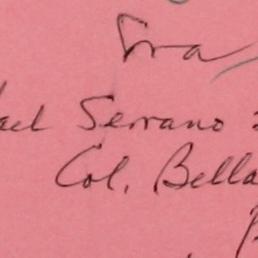 Sra
ael Serrano
Col. Bella